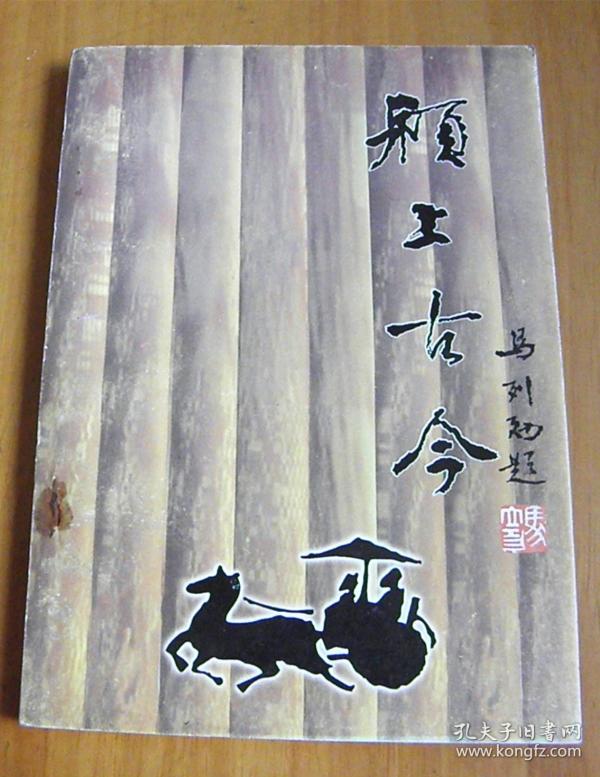 颍上古今
马列勉题
孔夫子旧书网
www.kongfz.com